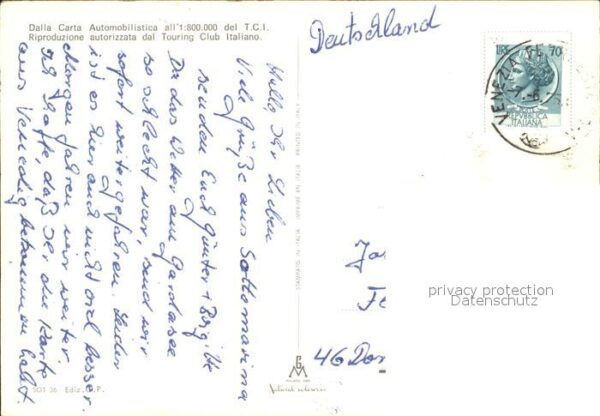 Dalla Carta Automobilistica all'1:800.000 del T.C.I.
Riproduzione autorizzata dal Touring Club Italiano.
Deutschland
LIRE 70
REPUBBLICA
ITALIANA
VENEZIA
Hallo Ihr Lieben
Viele Grüße aus Sottomarina
senden Euch Günter + Brigitte
Da das Wetter am Gardasee
so schlecht war, sind wir
sofort weitergefahren. Leider
ist es hier auch nicht viel besser
Morgen fahren wir weiter.
Ich hoffe, daß Ihr die Karte
aus Venedig bekommen habt.
46 Dor
privacy protection
Datenschutz
501-36 Ediz. G.P.